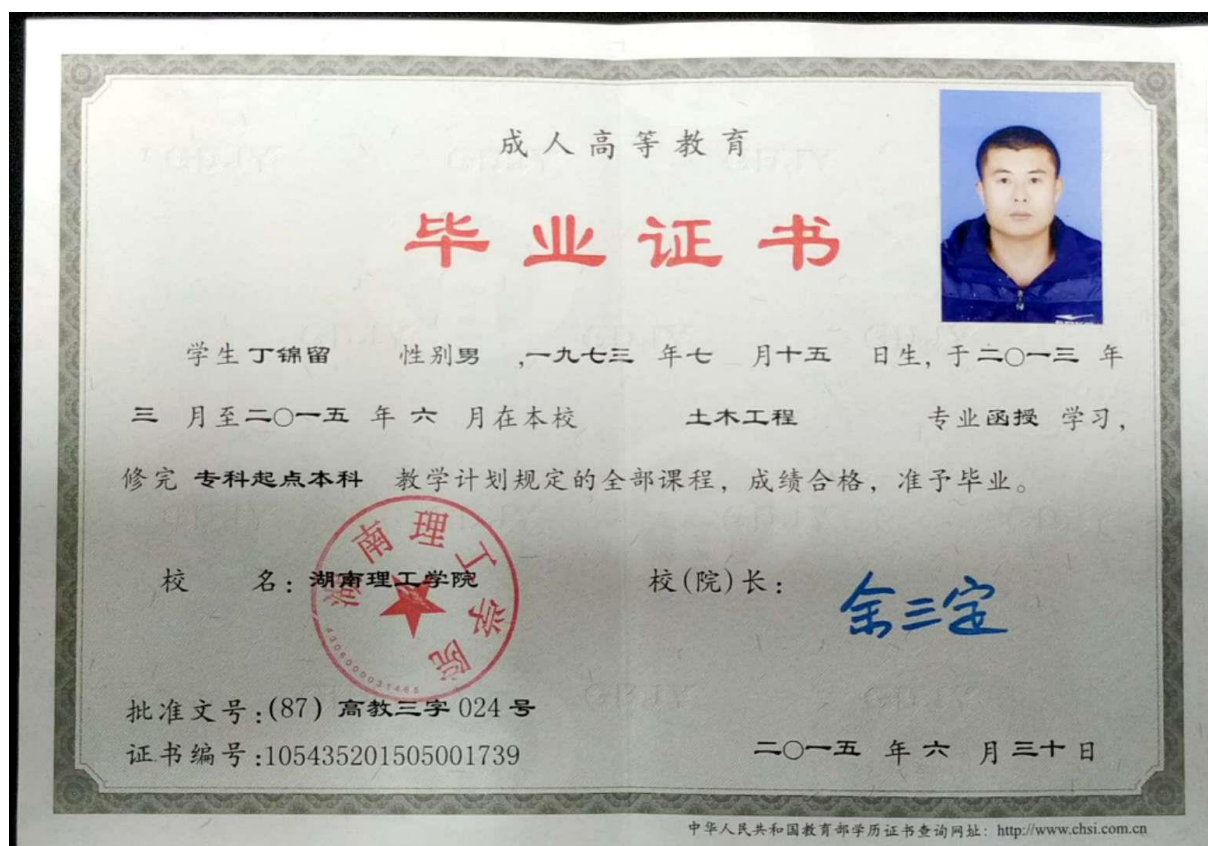 成人高等教育
毕业证书
学生丁锦留 性别男 ,一九七三 年七 月十五 日生, 于二〇一三 年
三 月至二〇一五 年 六 月在本校 土木工程 专业函授 学习,
修完 专科起点本科 教学计划规定的全部课程, 成绩合格, 准予毕业。
校 名: 湖南理工学院 校(院)长: 余三定
湖南理工学院
4306000031465
批准文号:(87) 高教三字 024 号
证书编号:105435201505001739 二〇一五 年 六 月 三十 日
中华人民共和国教育部学历证书查询网址: http://www.chsi.com.cn